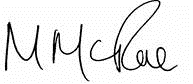 M McRae